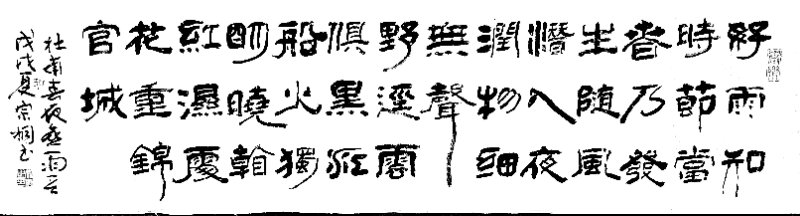 好雨知
時節當
春乃發
生隨風
潛入夜
潤物細
無聲
野逕雲
俱黑江
船火獨
明曉看
紅濕處
花重錦
官城
杜甫春夜喜雨
戊戌夏宗桐书